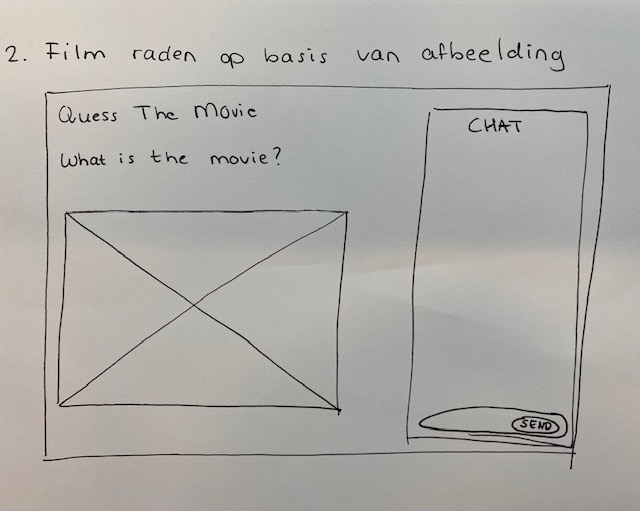 2. Film raden op basis van afbeelding
Quess The Movie
What is the movie?
CHAT
SEND